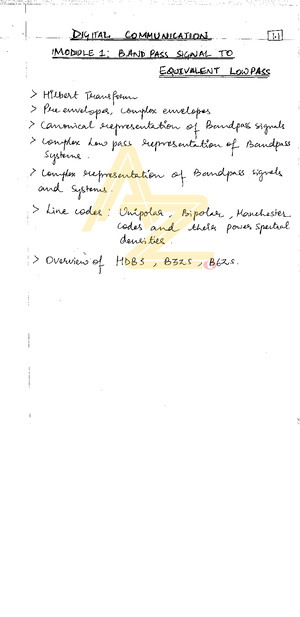 DIGITAL COMMUNICATION
1.1
MODULE 1: BAND PASS SIGNAL TO
EQUIVALENT LOWPASS
> Hilbert Transform
> Pre envelopes, complex envelopes
> Canonical representation of Bandpass signals
> Complex low pass representation of Bandpass
Systems.
> Complex representation of Bandpass signals
and Systems.
> Line codes: Unipolar, Bipolar, Manchester
codes and their power spectral
densities.
> Overview of HDB3, B3ZS, B6ZS.